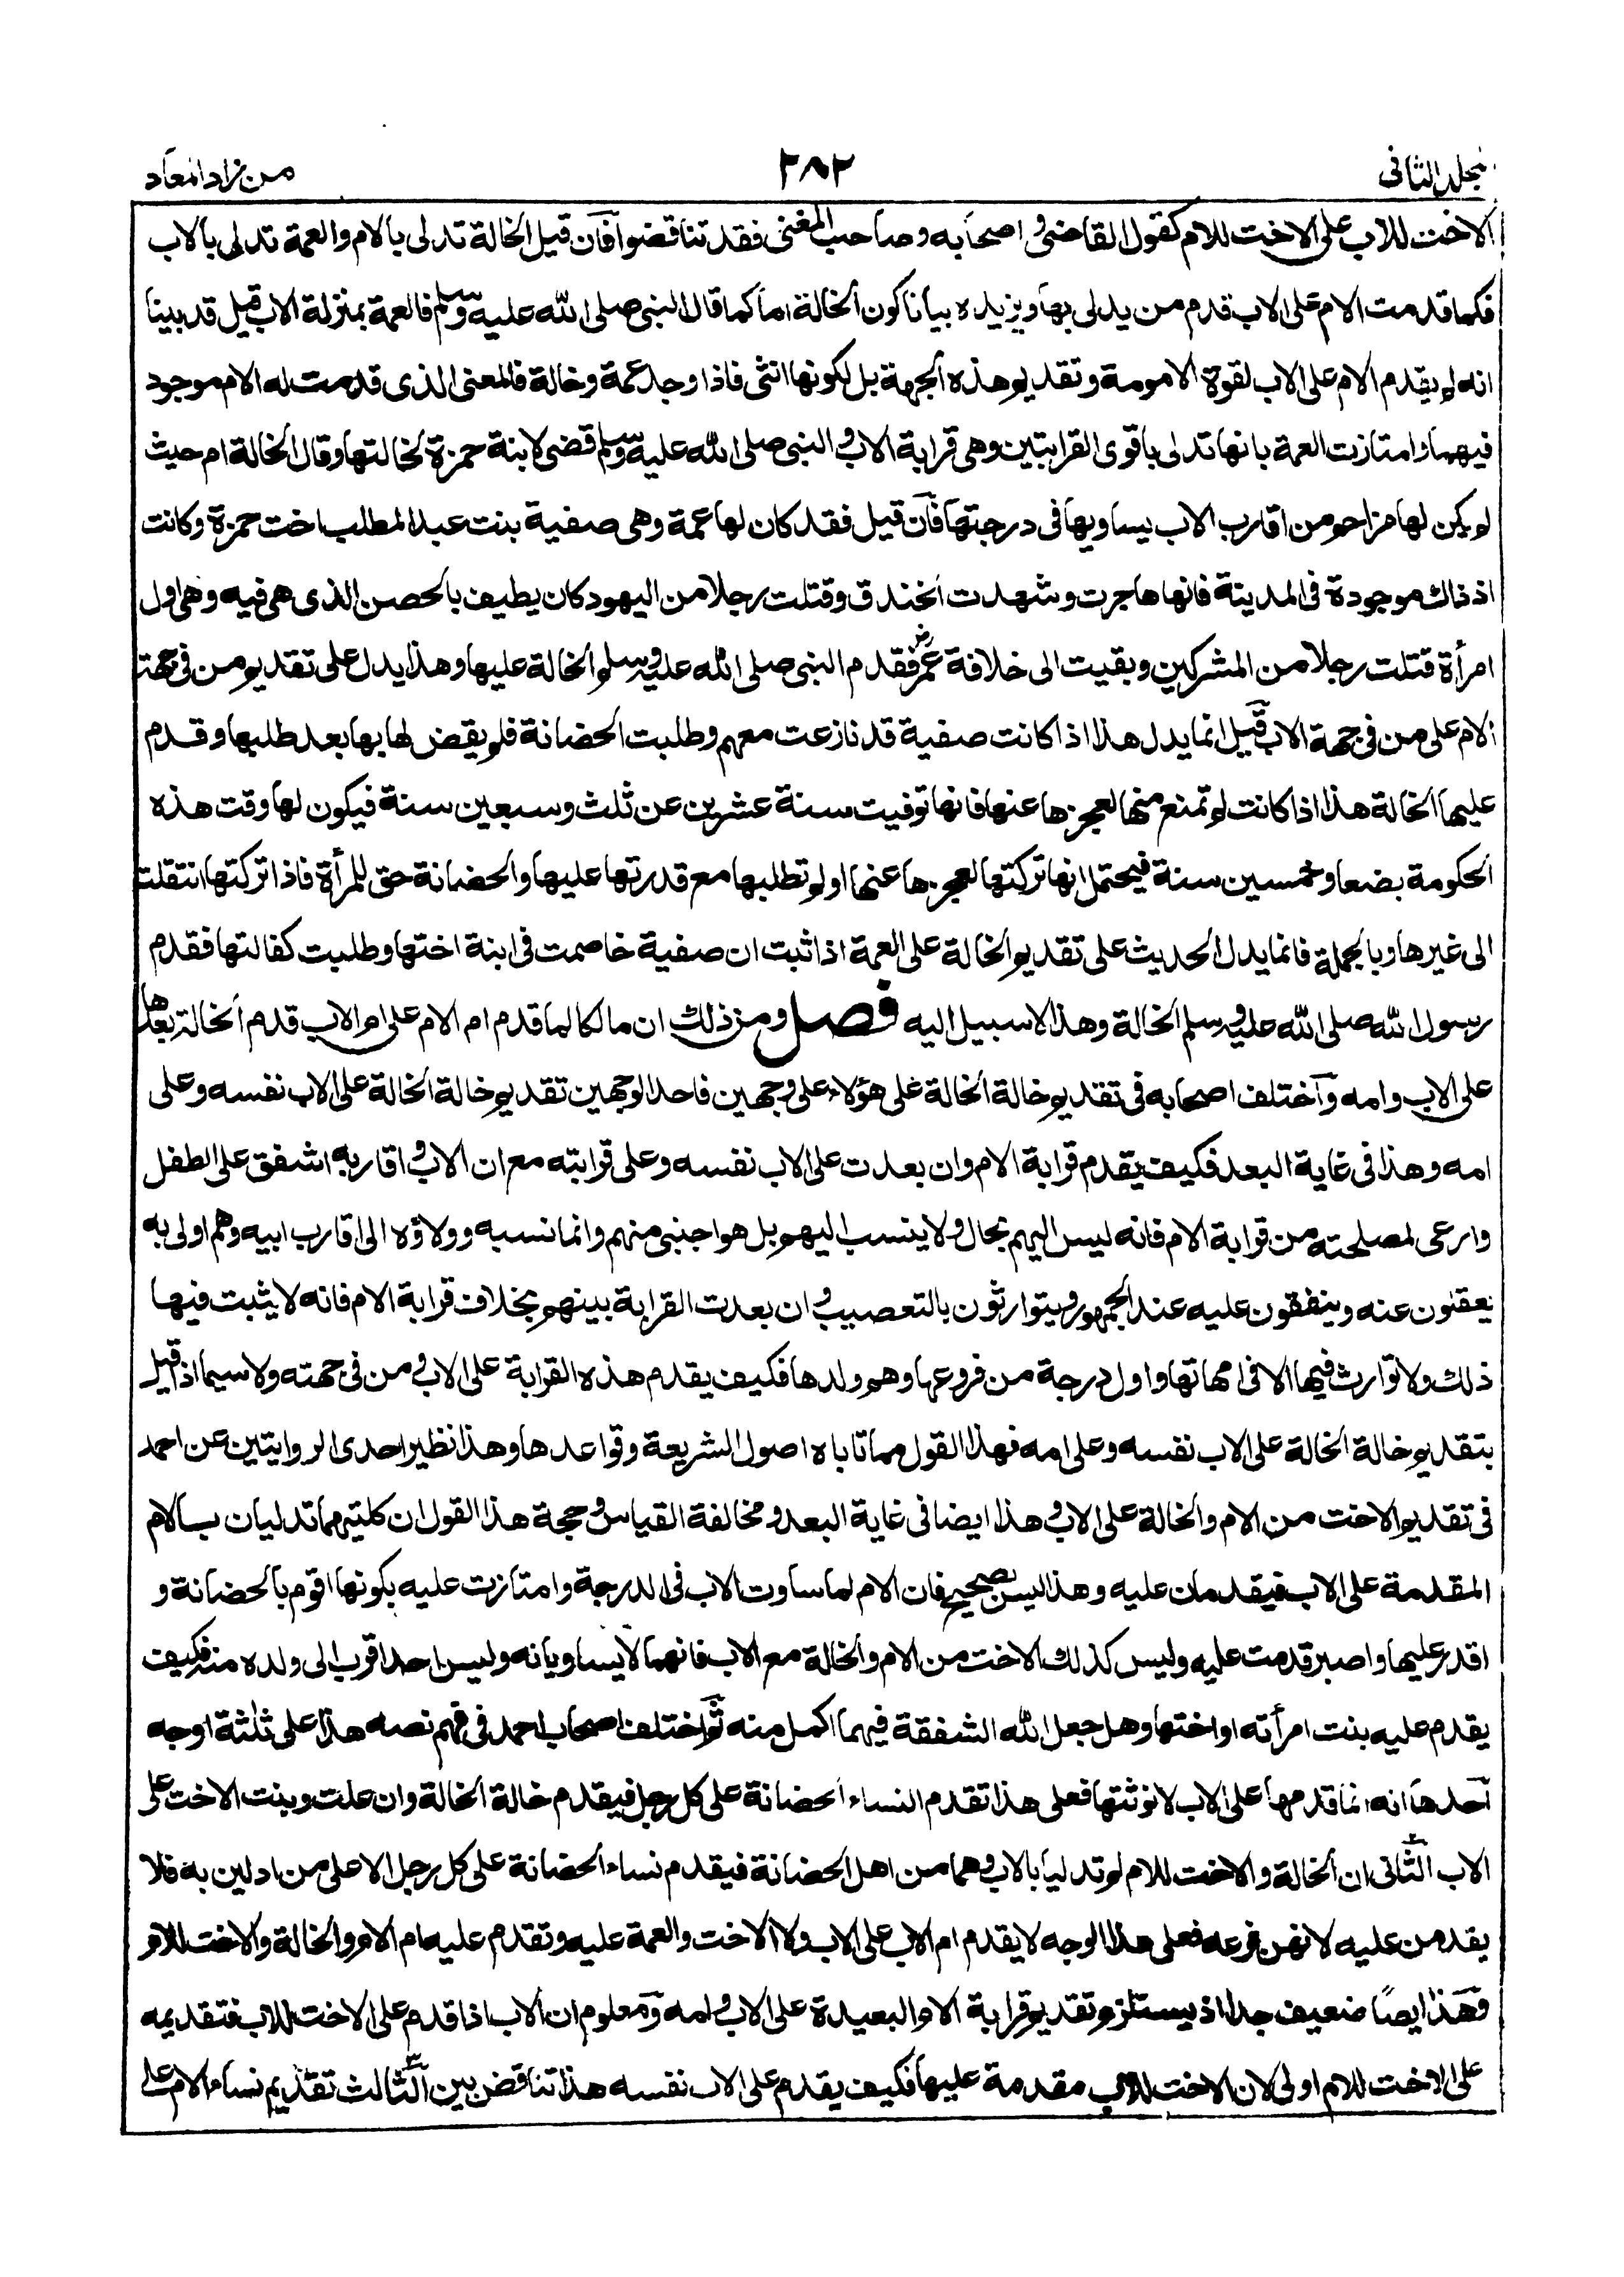 مجلد الثانى
٢٨٢
من زاد المعاد
الاخت للاب على الاخت للام كقول القاضى و اصحابه وصاحب المغنى فقد تناقضوا فان قيل الخالة تدلى بالام والعمة تدلى بالاب
فكما قدمت الام على الاب قدم من يدلى بها ويزيده بيانا كون الخالة اما كما قال النبى صلى الله عليه وسلم فالعمة بمنزلة الاب قيل قد بينا
انه لم يقدم الام على الاب لقوة الامومة وتقديم هذه الجهة بل لكونها انثى فاذا وجد عمة وخالة فالمعنى الذى قدمت له الام موجود
فيهما وامتازت العمة بانها تدلى باقوى القرابتين وهى قرابة الاب و النبى صلى الله عليه وسلم قضى لابنة حمزة لخالتها وقال الخالة ام حيث
لم يكن لها مزاحم من اقارب الاب يساويها فى درجتها فان قيل فقد كان لها عمة وهى صفية بنت عبد المطلب اخت حمزة وكانت
اذ ذاك موجودة فى المدينة فانها هاجرت وشهدت الخندق وقتلت رجلا من اليهود كان يطيف بالحصن الذى هى فيه وهى اول
امرأة قتلت رجلا من المشركين وبقيت الى خلافة عمر رض فقدم النبى صلى الله عليه وسلم الخالة عليها وهذا يدل على تقديم من فى جهة
الام على من فى جهة الاب قيل انما يدل هذا اذا كانت صفية قد نازعت معهم وطلبت الحضانة فلم يقض لها بها بعد طلبها وقدم
عليها الخالة هذا اذا كانت لم تمنع منها لعجزها عنها فانها توفيت سنة عشرين عن ثلث وسبعين سنة فيكون لها وقت هذه
الحكومة بضعا وخمسين سنة فيحتمل انها تركتها لعجزها عنها او لم تطلبها مع قدرتها عليها والحضانة حق للمرأة فاذا تركتها انتقلت
الى غيرها وبالجملة فانما يدل الحديث على تقديم الخالة على العمة اذا ثبت ان صفية خاصمت فى ابنة اختها وطلبت كفالتها فقدم
رسول الله صلى الله عليه وسلم الخالة وهذا لا سبيل اليه فصل ومن ذلك ان مالكا لما قدم ام الام على ام الاب قدم الخالة بعدها
على الاب وامه واختلف اصحابه فى تقديم خالة الخالة على هؤلاء على وجهين فاحد الوجهين تقديم خالة الخالة على الاب نفسه وعلى
امه وهذا فى غاية البعد فكيف يقدم قرابة الام وان بعدت على الاب نفسه وعلى قرابته مع ان الاب و اقاربه اشفق على الطفل
وارعى لمصلحته من قرابة الام فانه ليس اليهم بحال ولا ينسب اليهم بل هو اجنبى منهم وانما نسبه وولاؤه الى اقارب ابيه وهم اولى به
يعقلون عنه وينفقون عليه عند الجمهور و يتوارثون بالتعصيب و ان بعدت القرابة بينهم بخلاف قرابة الام فانه لا يثبت فيها
ذلك ولا توارث فيها الا فى امهاتها واول درجة من فروعها وهم ولدها فكيف يقدم هذه القرابة على الاب و من فى جهته ولا سيما اذا قيل
بتقديم خالة الخالة على الاب نفسه وعلى امه فهذا القول مما تاباه اصول الشريعة وقواعدها وهذا نظير احدى الروايتين عن احمد
فى تقديم الاخت من الام والخالة على الاب و هذا ايضا فى غاية البعد و مخالفة القياس و حجة هذا القول ان كلتيهما تدليان بالام
المقدمة على الاب فيقدمان عليه وهذا ليس بصحيح فان الام لما ساوت الاب فى الدرجة وامتازت عليه بكونها اقوم بالحضانة و
اقدر عليها واصبر قدمت عليه وليس كذلك الاخت من الام والخالة مع الاب فانهما لا يساويانه وليس احد اقرب الى ولده منه فكيف
يقدم عليه بنت امرأته او اختها وهل جعل الله الشفقة فيهما اكمل منه ثم اختلف اصحاب احمد فى فهم نصه هذا على ثلثة اوجه
احدها انه انما قدمها على الاب لانوثتها فعلى هذا تقدم النساء الحضانة على كل رجل فيقدم خالة الخالة وان علت وبنت الاخت على
الاب الثانى ان الخالة و الاخت للام لم تدليا بالاب و هما من اهل الحضانة فيقدم نساء الحضانة على كل رجل الا على من ادلين به فلا
يقدمن عليه لانهن فرعه فعلى هذا الوجه لا يقدم ام الاب على الاب ولا الاخت والعمة عليه وتقدم عليه ام الام والخالة والاخت للام
وهذا ايضا ضعيف جدا اذ يستلزم تقديم قرابة الام البعيدة على الاب و امه ومعلوم ان الاب اذا قدم على الاخت للاب فتقديمه
على الاخت للام اولى لان الاخت للاب مقدمة عليها فكيف يقدم على الاب نفسه هذا تناقض بين الثالث تقديم نساء الام على